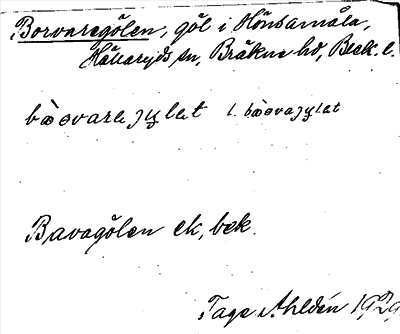 Borvaregölen, göl i Hönsamåla,
Hällaryds sn, Bräkne hd, Blek. l.
bòʚvarajy̨lɐt l. bòʚvajy̨lɐt
Bavagölen ek, bek.
Tage Ahldén 1929